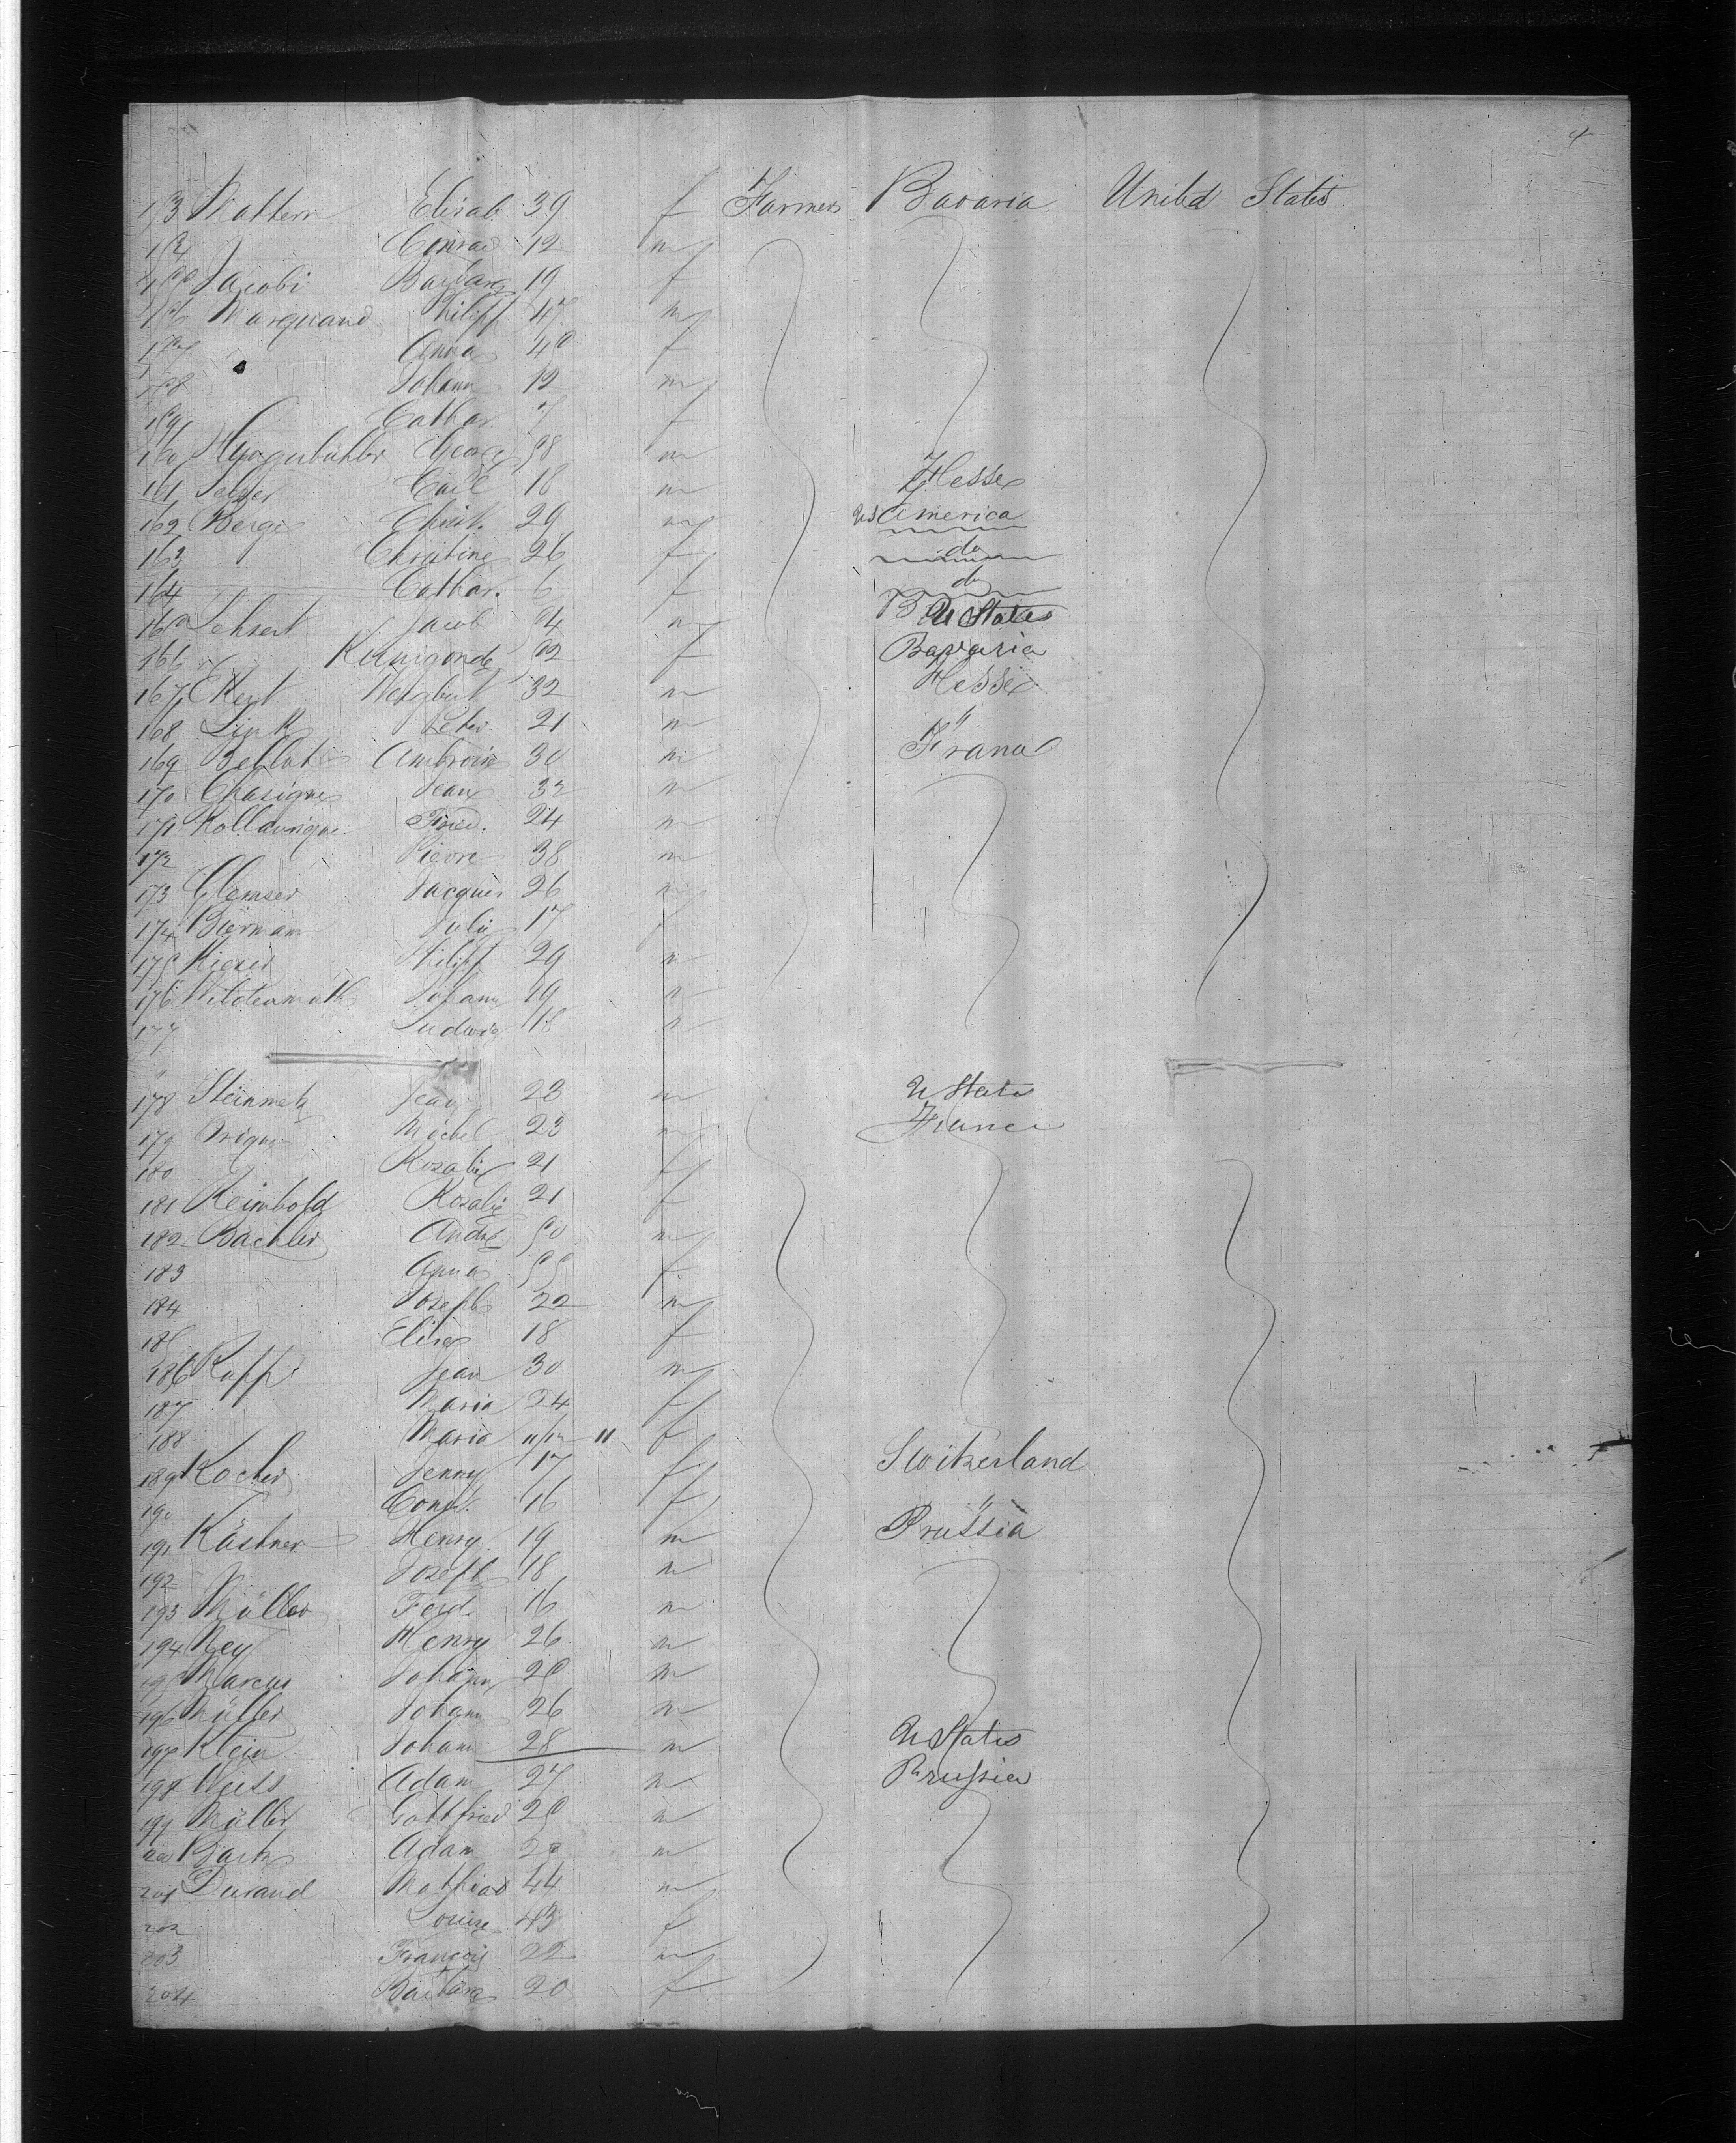 4
153 Mattern Elisab. 39 f Farmers Bavaria United States
154 Conrad 12 m
155 Jacobi Barbara 19 f
156 Marquand Philipp 47 m
157 Anna 45 f
158 Johann 12 m
159 Cathar. 7 f
160 Hungerbühler George 58 m
161 Selzer Carl 18 m Hesse
162 Berge Christ. 29 m US America
163 Christine 26 f do
164 Cathar. 6 f do
165 Lehnert Jacob 54 m U States
166 Kunigonde 52 f Bavaria
167 Ekert 32 m Hesse
168 Link Peter 21 m "
169 Bellat Ambroise 30 m France
170 Chasigne Jean 32 m
171 Fried. 24 m
172 Pierre 38 m
173 Clemser Jacques 26 m
174 Biermann Julie 17 f
175 Kiexer Philipp 29 m
176 Wildermuth Johann 19 m
177 Ludwig 18 m
178 Steinmetz Jean 23 m U States
179 Michel 23 m France
180 Rosalie 21 f
181 Reimbold Rosalie 21 f
182 Bachler André 50 m
183 Anna 55 f
184 Joseph 22 m
185 Elise 18 f
186 Rapp Jean 30 m
187 Maria 24 f
188 Maria 11/12 " f
189 Kocher Jenny 17 f Switzerland
190 16 f "
191 Kästner Henry 19 m Prussia
192 Joseph 18 m
193 Müller Ferd. 16 m
194 Ney Henry 26 m
195 Marcus Johann 25 m
196 Müller Johann 26 m
197 Klein Johann 28 m U States
198 Weiss Adam 27 m Prussia
199 Müller Gottfried 25 m
200 Adam m
201 Durand Mathias 44 m
202 Louise 43 f
203 François 22 m
204 Barbara 20 f